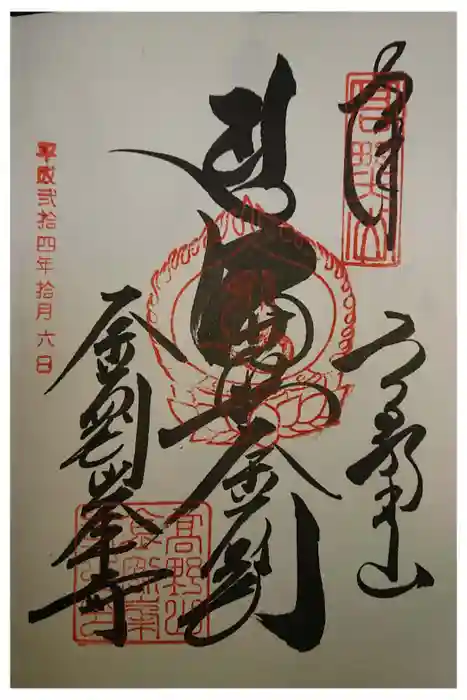 奉拝
高野山
高野山
遍照金剛
金剛峯寺
高野山
金剛峯
平成弐拾四年拾月六日